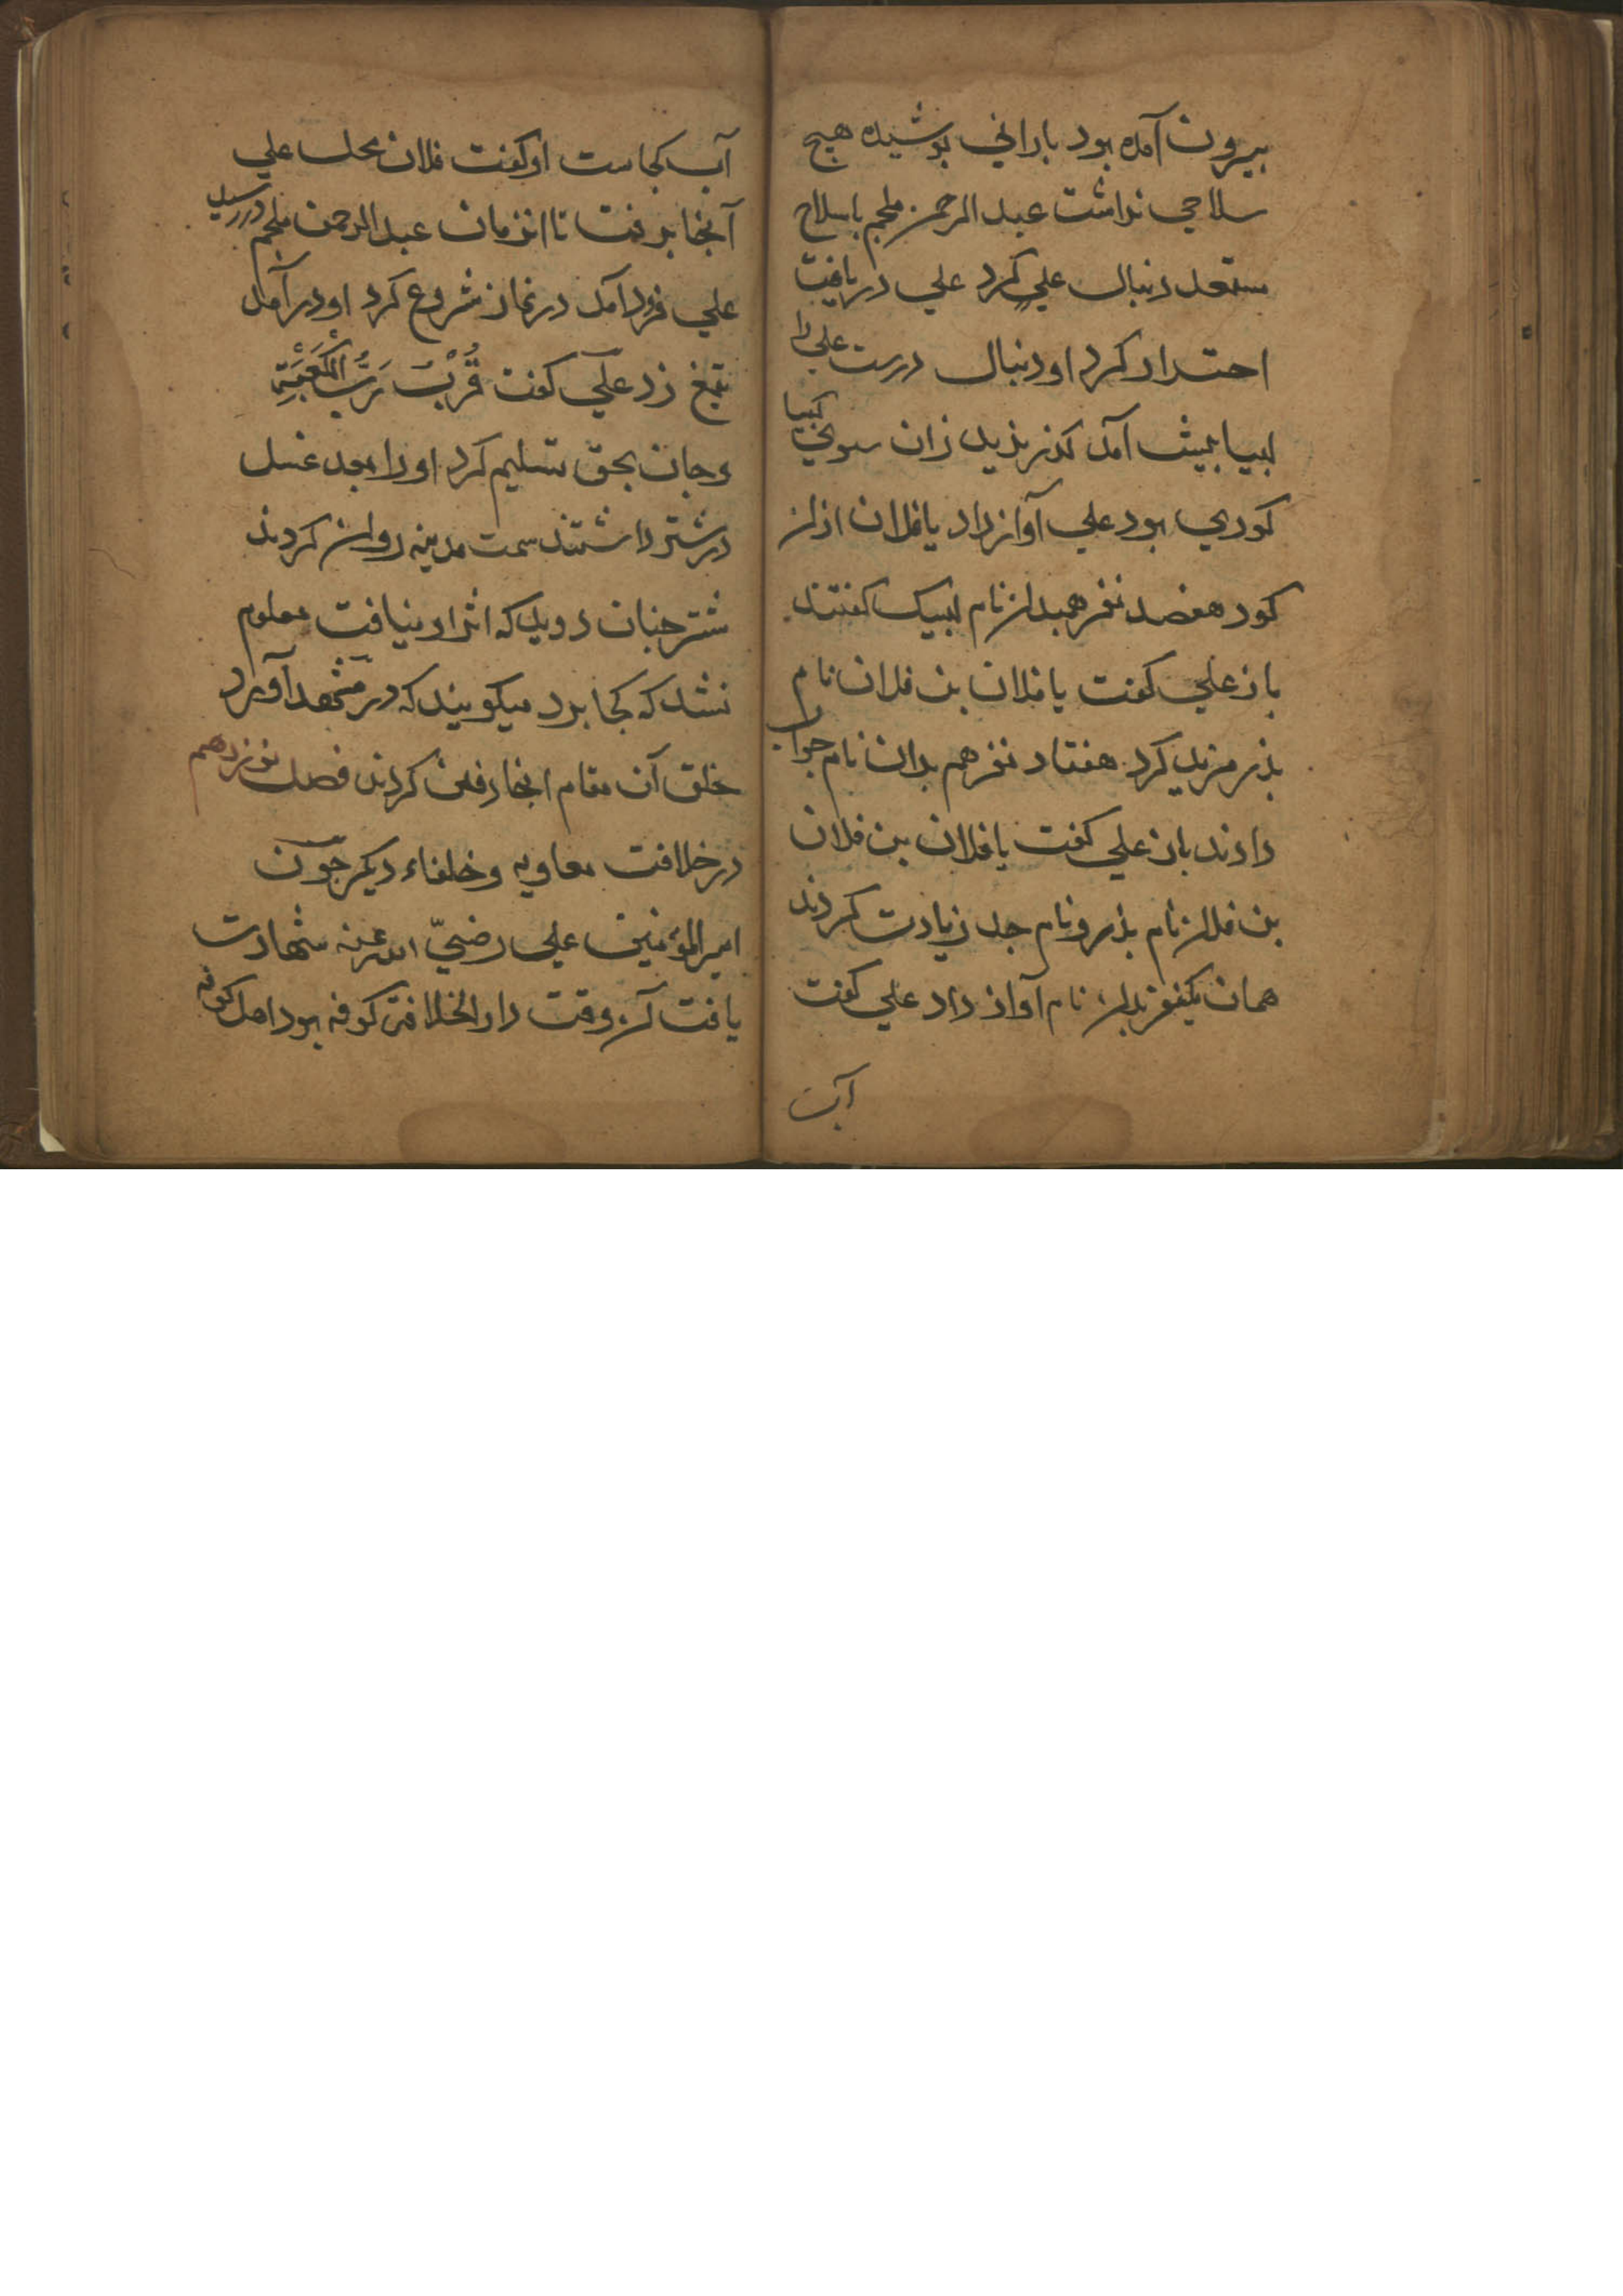 بیرون آمده بود بارانی پوشیده هیچ
سلاحی نداشت عبد الرحمن ملجم با سلاح
مستعد دنبال علی کرد علی دریافت
احتراز کرد او دنبال درست علی را
پیش آمد زان سوی
کوری بود علی آواز داد یا فلان از آن
کور هفصد نفر همبدان نام لبیک گفتند
باز علی گفت یا فلان بن فلان نام
بذر مزید کرد هفتاد نفر هم بدان نام جواب
دادند باز علی گفت یا فلان بن فلان
بن فلان نام بذر و نام جد زیادت کردند
همان یکنفر بدان نام آواز داد علی گفت
آب
آب کجاست او گفت فلان محل علی
آنجا برفت تا انزمان عبد الرحمن ملجم در رسید
علی فرود آمد در نماز شروع کرد او در آمد
تیغ زد علی گفت فُزْتُ وَرَبِّ الْكَعْبَةِ
و جان بحق تسلیم کرد او را بعد غسل
در شتر داشتند سمت مدینه روان کردند
شتر چنان دوید که اثر او نیافت معلوم
نشد که کجا برد میگویند که در آورد
خلق آن مقام انجا دفن کردند فصل نوزدهم
در خلافت معاویه و خلفاء دیگر چون
امیر المؤمنین علی رضیّ الله عنه شهادت
یافت آن وقت دار الخلافة کوفه بود اهل کوفه